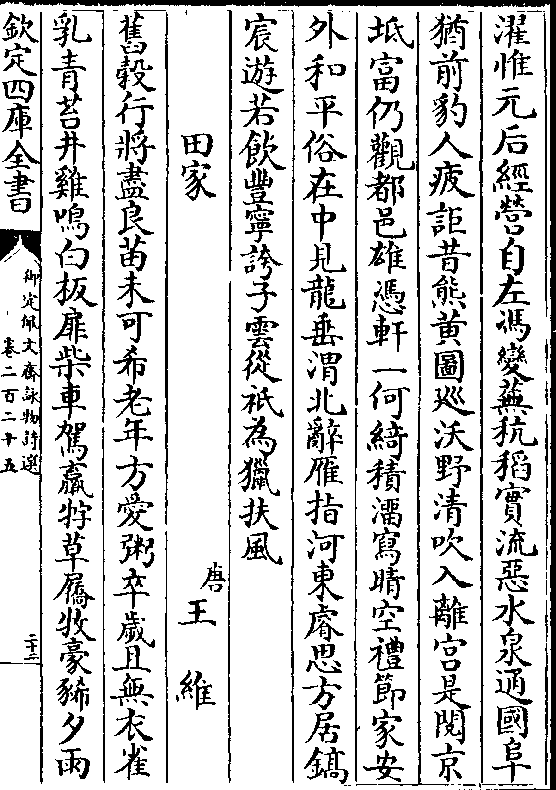 濯惟元后經營自左馮變蕪秔稻實流惡水泉通國阜
猶前豹人疲詎昔熊黄圖廵沃野清吹入離宫是閱京
坻富仍觀都邑雄憑軒一何綺積濡寫晴空禮節家安
外和平俗在中見龍垂渭北辭雁指河東睿思方居鎬
宸遊若飲豐寧誇子雲從祇為獵扶風
田家
唐王維
舊穀行將盡良苗未可希老年方愛粥卒歲且無衣雀
乳青苔井雞鳴白板扉柴車駕羸牸草屩牧豪豨夕雨
欽定四庫全書
御定佩文齋詠物詩選
卷二百二十五
二十二